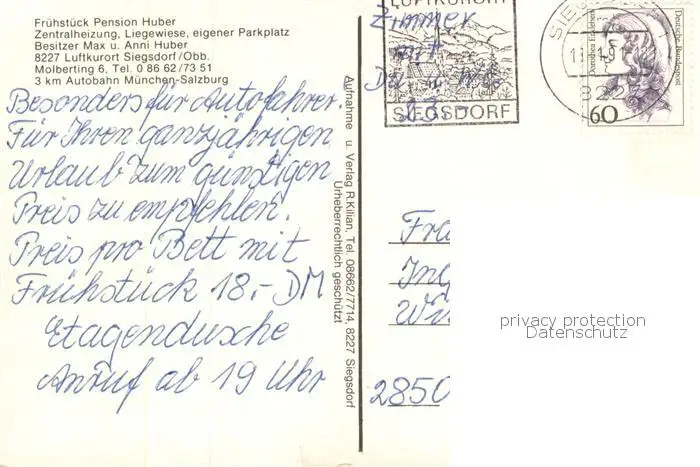 Frühstück Pension Huber
Zentralheizung, Liegewiese, eigener Parkplatz
Besitzer Max u. Anni Huber
8227 Luftkurort Siegsdorf/Obb.
Molberting 6, Tel. 0 86 62/73 51
3 km Autobahn München-Salzburg
Besonders für Autofahrer.
Für Ihren ganzjährigen
Urlaub zum günstigen
Preis zu empfehlen.
Preis pro Bett mit
Frühstück 18,- DM
Etagendusche
Anruf ab 19 Uhr
Aufnahme u. Verlag R. Kilian, Tel. 08662/7714, 8227 Siegsdorf
Urheberrechtlich geschützt
LUFTKURORT
SIEGSDORF
Zimmer
mit
23.-
Deutsche Bundespost
Dorothea Erxleben
60
Fra
Ing
2850
privacy protection
Datenschutz